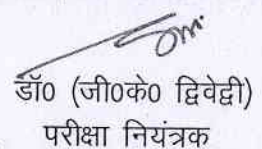 डॉ0 (जी0के0 द्विवेद्वी)
परीक्षा नियंत्रक